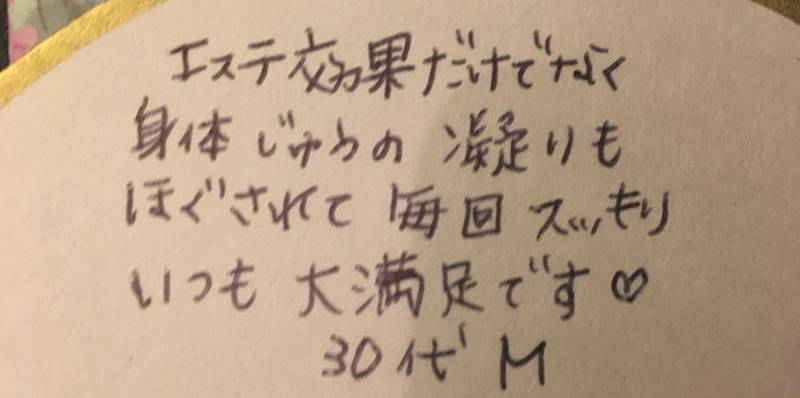 エステ効果だけでなく
身体じゅうの凝りも
ほぐされて毎回スッキリ
いつも大満足です♡
30代 M